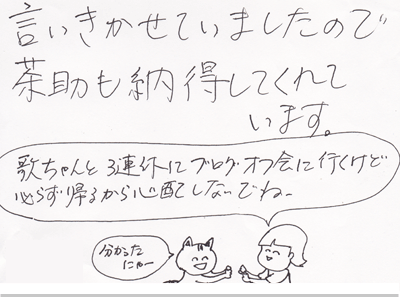 言いきかせていましたので
茶助も納得してくれて
います。
歌ちゃんと3連休にブログオフ会に行くけど
必ず帰るから心配しないでね～
分かった
にゃー